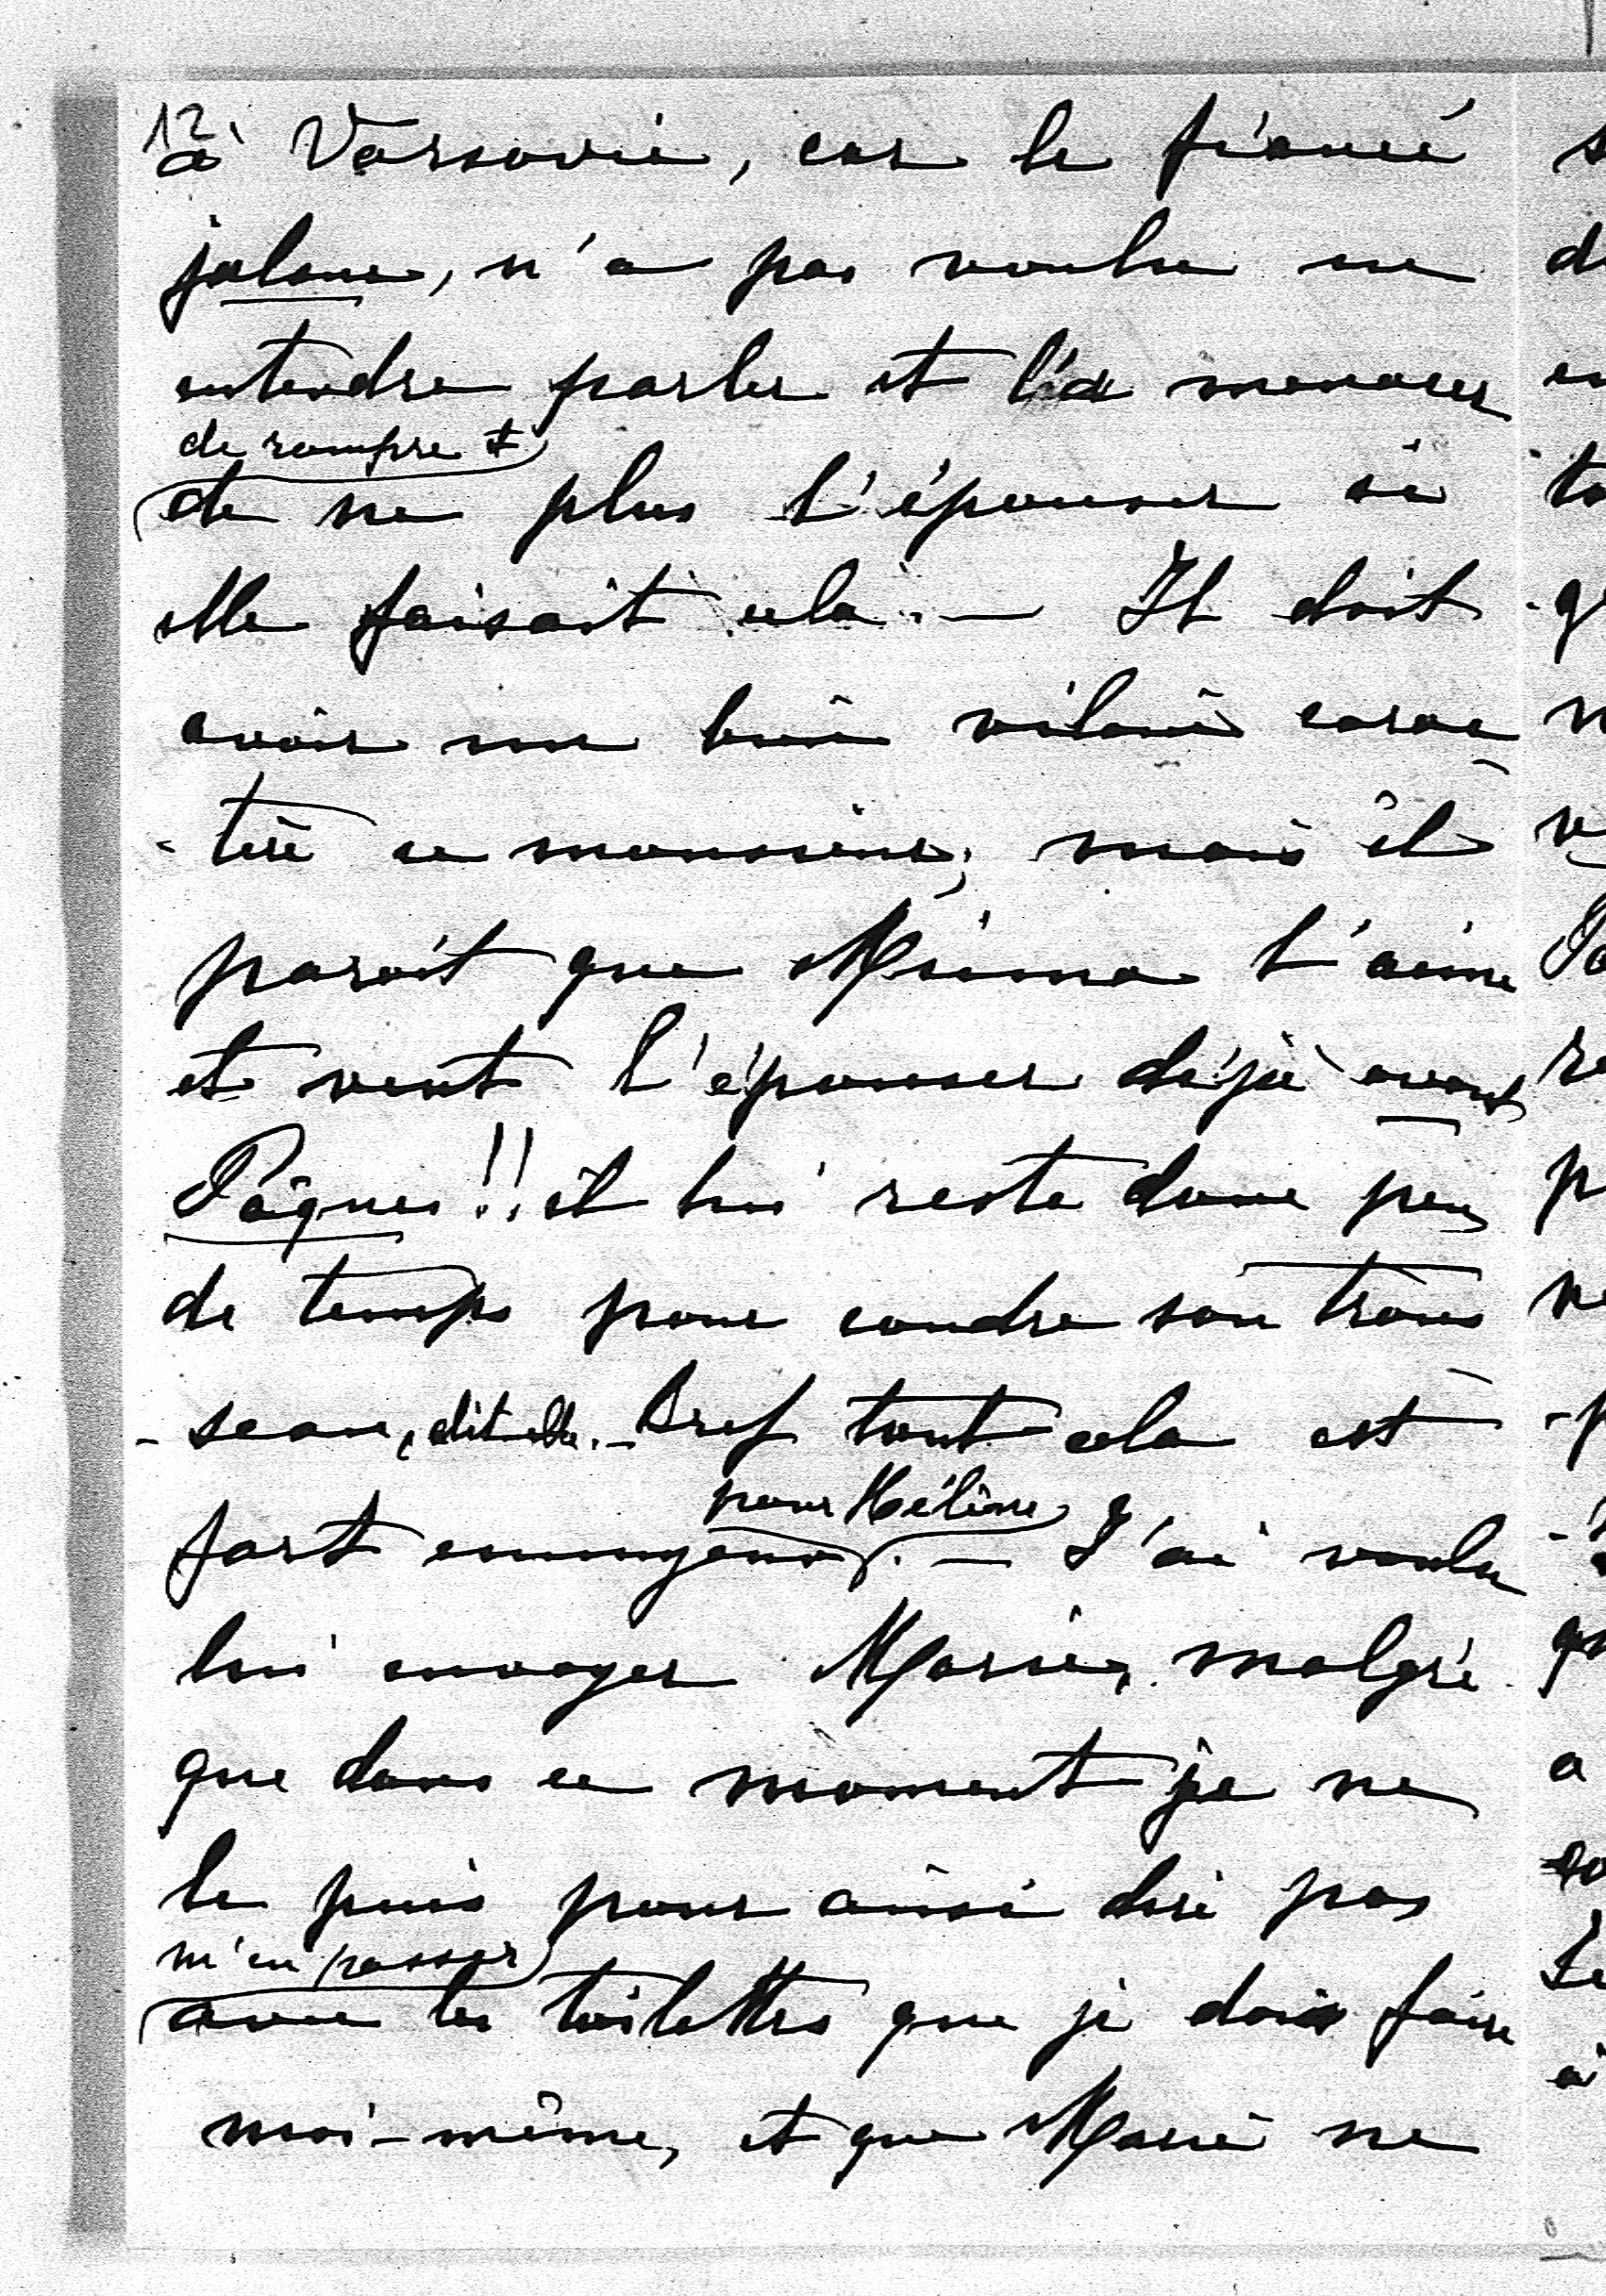 12
à Varsovie, car le fiancé
jaloux, n'a pas voulu en
entendre parler et l'a menacer
de rompre et
de ne plus l'épouser si
elle faisait cela. — Il doit
avoir un bien vilain carac
-tère ce monsieur; mais il
paraît que Minna l'aime
et veut l'épouser déjà avant
Pâques!! il lui reste donc peu
de temps pour coudre son trous
-seau, dit elle. — Bref tout cela est
pour Hélène
fort ennuyeux. — J'ai voulu
lui envoyer Marie, malgré
que dans ce moment je ne
le puis pour ainsi dire pas
m'en passer
avec les toilettes que je dois faire
moi-même, et que Marie ne